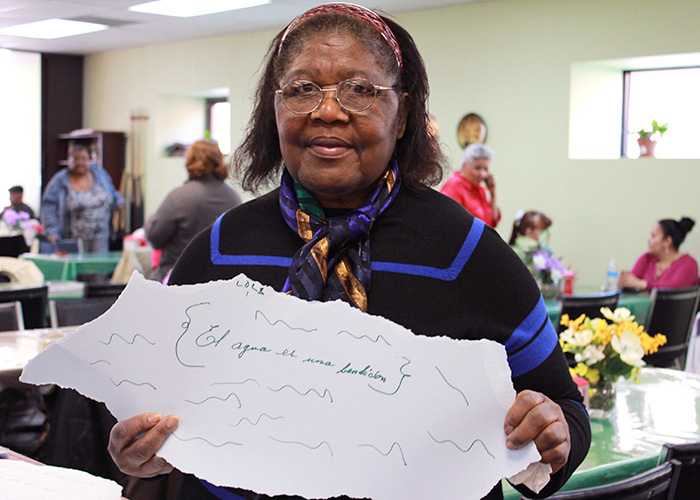 LOLA
{ El agua es una bendicion }